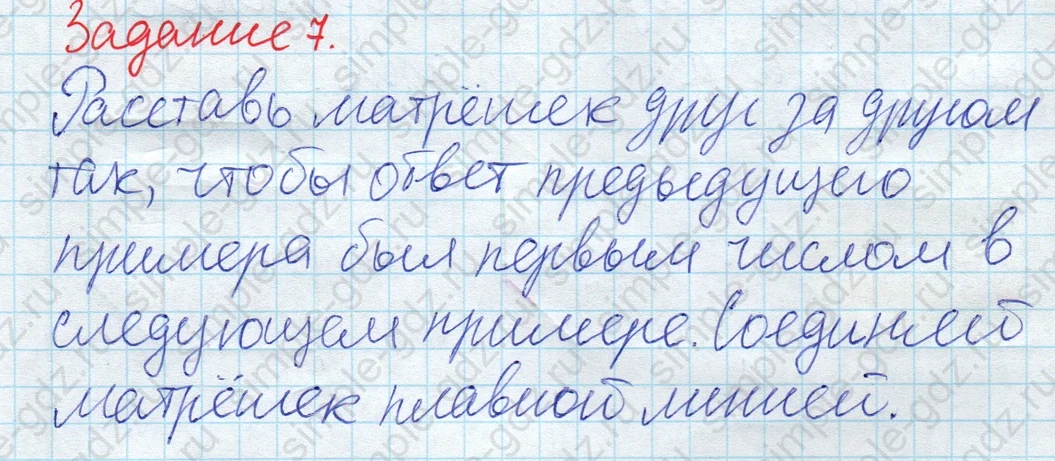 Задание 7.
Расставь матрёшек друг за другом
так, чтобы ответ предыдущего
примера был первым числом в
следующем примере. Соединяей
матрёшек плавной линией.